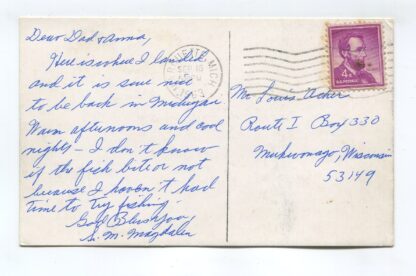 Dear Dad & Anna,
Here is where I landed
and it is sure nice
to be back in Michigan
Warm afternoons and cool
nights – I don't know
if the fish bite or not
because I haven't had
time to try fishing.
God Bless You,
S. M. Magdalen
MICH
4¢
Mr Louis
Route I Box 330
Mukwonago, Wisconsin
53149